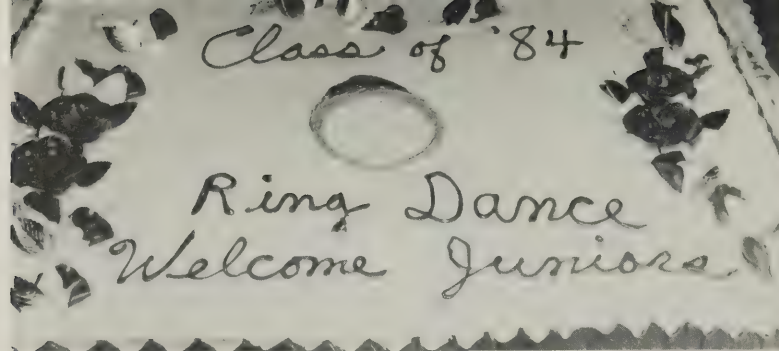 Class of '84
Ring Dance
Welcome Juniors